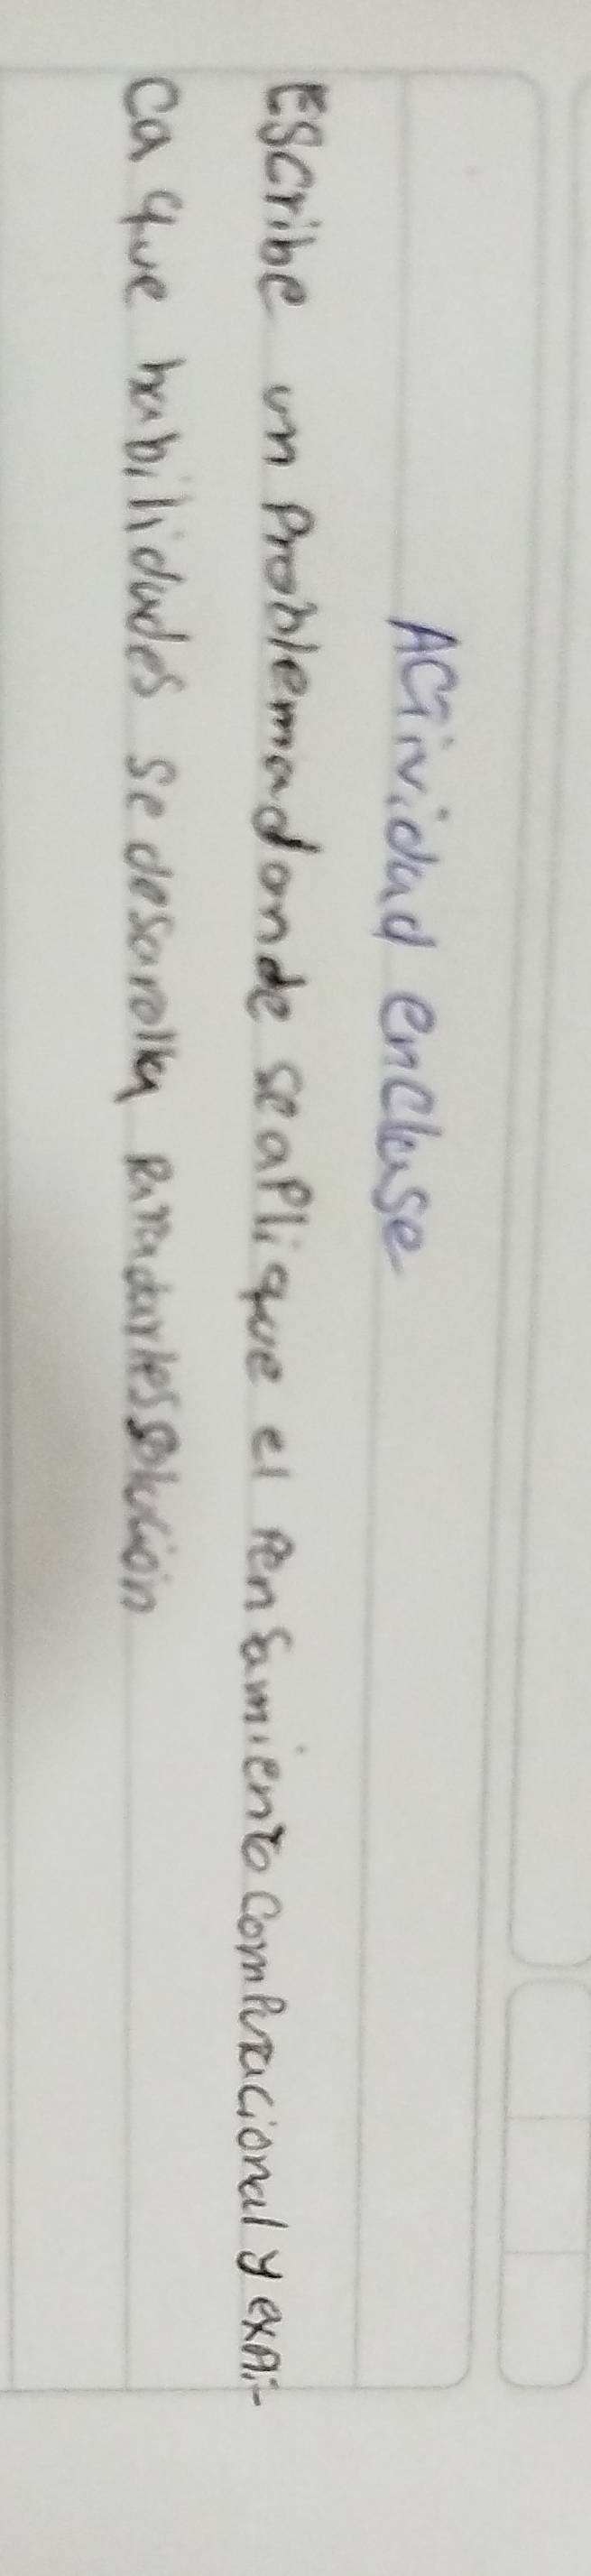 Actividad enclase
Escribe un Problema donde se aplique el Pensamiento Computacional y expli-
ca que habilidades se desarolla Para darles solución